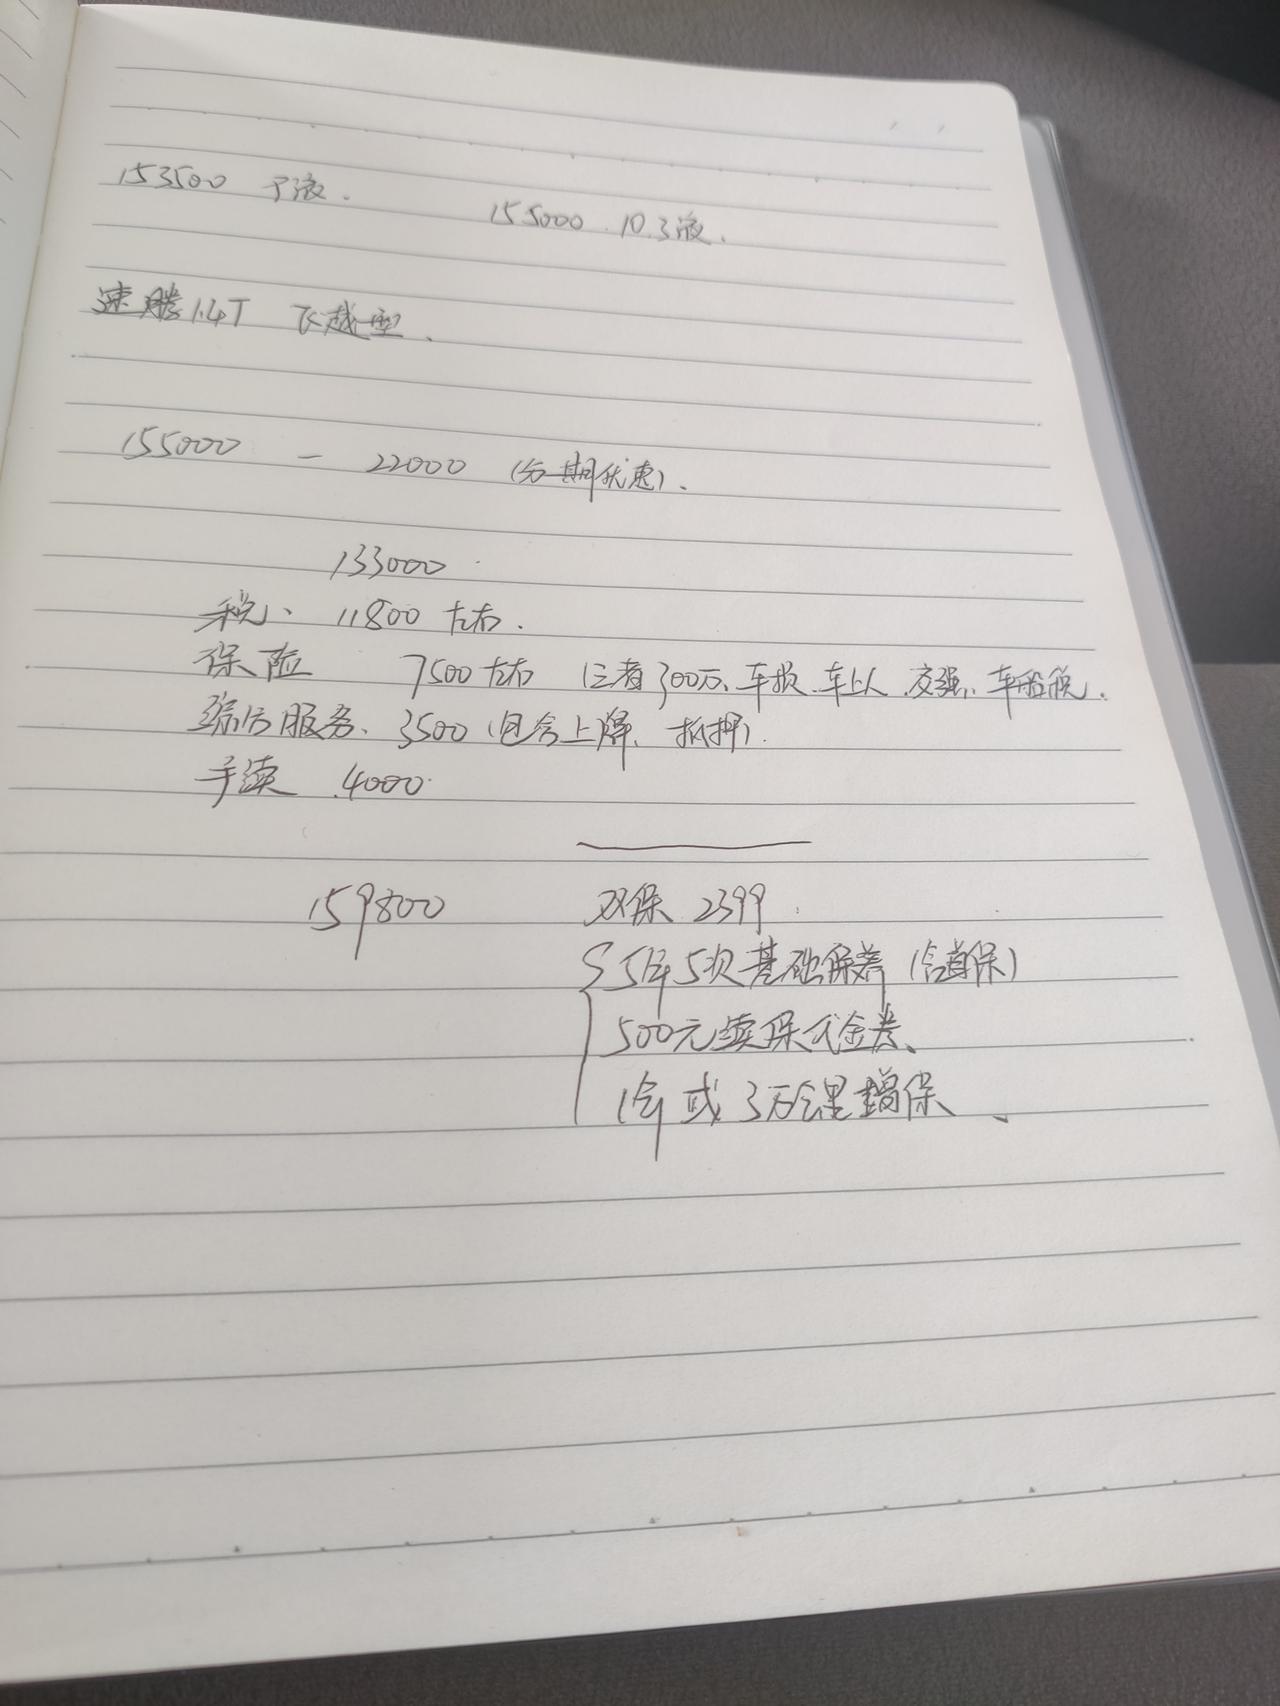 153500 下液.
155000. 10.3液.
速腾1.4T 飞越型.
155000 - 22000 (分期优惠).
133000
税、11800 左右.
保险 7500左右 (三者300万、车损、车上人、交强、车船税.
综合服务、3500 (包含上牌、抵押).
手续 4000
159800
双保 2399
5年5次基础保养 (含首保)
500元续保代金券、
1年或3万公里增保、